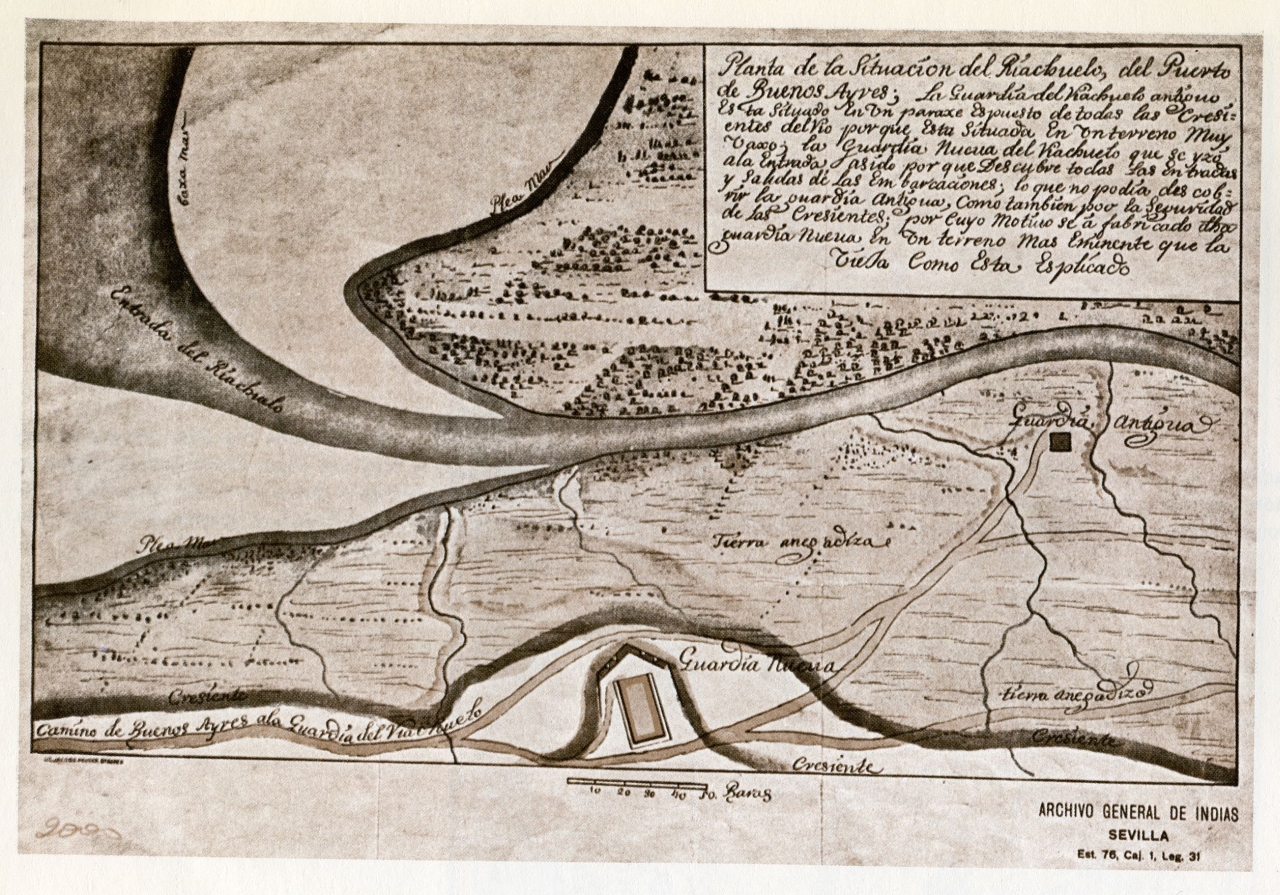 Planta de la Situacion del Riachuelo, del Puerto
de Buenos Ayres; La Guardia del Riachuelo antiguo
Esta Situado En Vn paraxe Espuesto de todas las Cresi-
entes del Rio porque Esta Situada En Vn terreno Muy
Vaxo; la Guardia Nueua del Riachuelo que se yzo
ala Entrada, asido por que Descubre todas Las entradas
y Salidas de Las Embarcaciones; lo que no podia descob-
rir la guardia Antigua, Como tambien por la Seguridad
de las Cresientes; por Cuyo Motiuo se á fabricado dha
guardia Nueua En Vn terreno Mas Eminente que la
Vieja Como Esta Esplicado
baxa mar
Plea Mar
Entrada del Riachuelo
Guardia Antigua
Plea Mar
Tierra anegadiza
Guardia Nueua
Cresiente
tierra anegadiza
Camino de Buenos Ayres ala Guardia del Riachuelo
Cresiente
Cresiente
10 20 30 40 50 Baras
ARCHIVO GENERAL DE INDIAS
SEVILLA
Est. 76, Caj. 1, Leg. 31